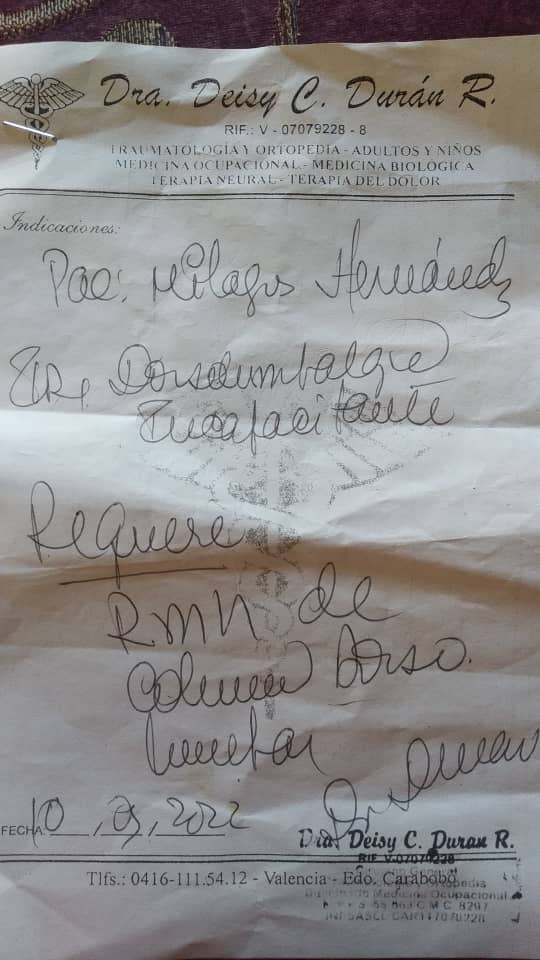 Dra. Deisy C. Durán R.
RIF.: V - 07079228 - 8
TRAUMATOLOGÍA Y ORTOPEDIA - ADULTOS Y NIÑOS
MEDICINA OCUPACIONAL - MEDICINA BIOLÓGICA
TERAPIA NEURAL - TERAPIA DEL DOLOR
Indicaciones:
Pac: Milagros Hernández
Dorsolumbalgia
Incapacitante
Requiere
RMN de
Columna Dorso
lumbar
FECHA 10, 03, 2022
Dra. Deisy C. Duran R.
RIF V-07079228
Tlfs.: 0416-111.54.12 - Valencia - Edo. Carabobo
Medicina Ocupacional